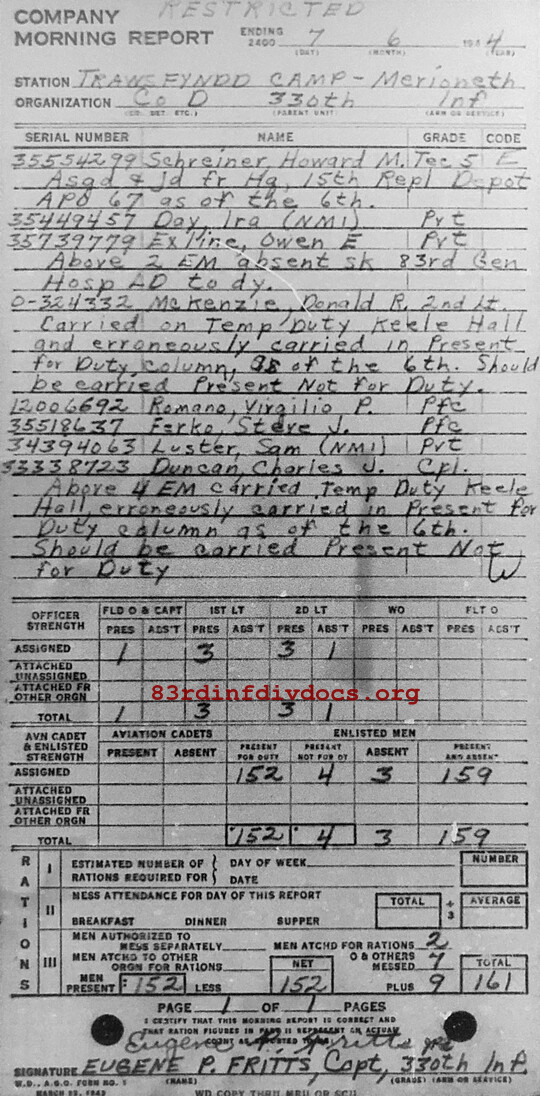 RESTRICTED
COMPANY
MORNING REPORT ENDING 2400 7 6 1944
(DAY) (MONTH) (YEAR)
STATION TRAWSFYNDD CAMP - Merioneth
ORGANIZATION Co D 330th Inf
(CO. DET. ETC.) (PARENT UNIT) (ARM OR SERVICE)
SERIAL NUMBER NAME GRADE CODE
35554299 Schreiner, Howard M. Tec 5 E
Asgd & jd fr Hq, 15th Repl Depot
APO 67 as of the 6th.
35449457 Day, Ira (NMI) Pvt
35739779 Exline, Owen E Pvt
Above 2 EM absent sk 83rd Gen
Hosp AD to dy.
O-324332 McKenzie, Donald R. 2nd Lt.
Carried on Temp Duty Keele Hall
and erroneously carried in Present
for Duty column, as of the 6th. Should
be carried Present Not for Duty.
12006692 Romano, Virgilio P. Pfc
35518637 Ferko, Steve J. Pfc
34394063 Luster, Sam (NMI) Pvt
33338723 Duncan, Charles J. Cpl.
Above 4 EM carried Temp Duty Keele
Hall, erroneously carried in Present for
Duty column as of the 6th.
Should be carried Present Not
for Duty
OFFICER STRENGTH FLD O & CAPT 1ST LT 2D LT WO FLT O
PRES ABS'T PRES ABS'T PRES ABS'T PRES ABS'T PRES ABS'T
ASSIGNED 1 3 3 1
ATTACHED UNASSIGNED
ATTACHED FR OTHER ORGN
83rdinfdivdocs.org
TOTAL 1 3 3 1
AVN CADET & ENLISTED STRENGTH AVIATION CADETS ENLISTED MEN
PRESENT ABSENT PRESENT FOR DUTY PRESENT NOT FOR DY ABSENT PRESENT AND ABSENT
ASSIGNED 152 4 3 159
ATTACHED UNASSIGNED
ATTACHED FR OTHER ORGN
TOTAL 152 4 3 159
RATIONS
I ESTIMATED NUMBER OF RATIONS REQUIRED FOR { DAY OF WEEK DATE NUMBER
II MESS ATTENDANCE FOR DAY OF THIS REPORT TOTAL ÷ 3 AVERAGE
BREAKFAST DINNER SUPPER
III MEN AUTHORIZED TO MESS SEPARATELY MEN ATCHD FOR RATIONS 2
MEN ATCHD TO OTHER ORGN FOR RATIONS NET O & OTHERS MESSED 7 TOTAL
MEN PRESENT 152 LESS 152 PLUS 9 161
PAGE 1 OF 1 PAGES
I CERTIFY THAT THIS MORNING REPORT IS CORRECT AND
THAT RATION FIGURES IN PART II REPRESENT AN ACTUAL
COUNT AS REPORTED TO ME
Eugene P. Fritts
SIGNATURE EUGENE P. FRITTS, Capt, 330th Inf.
(NAME) (GRADE) (ARM OR SERVICE)
W.D., A.G.O. FORM NO. 1